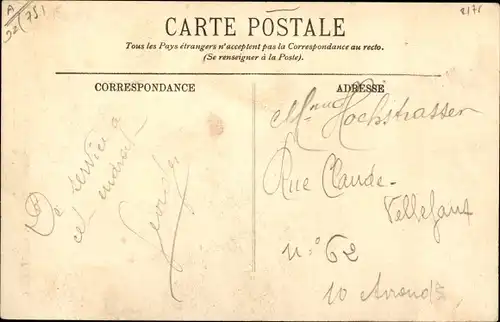 A
92 (751
2175
CARTE POSTALE
Tous les Pays étrangers n'acceptent pas la Correspondance au recto.
(Se renseigner à la Poste).
CORRESPONDANCE
De service à
cet endroit
Georges
ADRESSE
Hochstrasser
Rue Claude-
Vellefaux
n° 62
10 Arrond